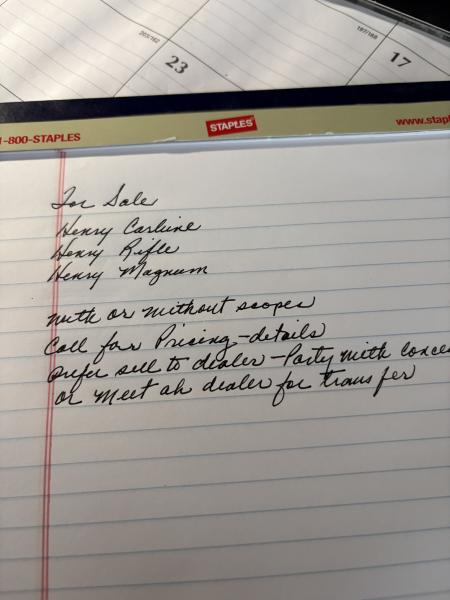 203/162
197/168
23
17
1-800-STAPLES
STAPLES
www.stapl
For Sale
Henry Carbine
Henry Rifle
Henry Magnum
with or without scopes
Call for Pricing-details
prefer sell to dealer-Party with conce
or meet at dealer for transfer